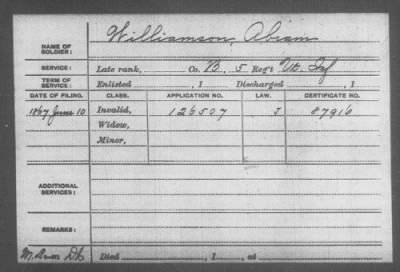 NAME OF SOLDIER: Williamson, Abram
SERVICE: Late rank, Co. B, 5 Reg't Vt. Inf
TERM OF SERVICE: Enlisted , 1 Discharged , 1
DATE OF FILING. CLASS. APPLICATION NO. LAW. CERTIFICATE NO.
1867 June 10 Invalid, 126507 J 87916
Widow,
Minor,
ADDITIONAL SERVICES:
REMARKS:
Died , 1 , at